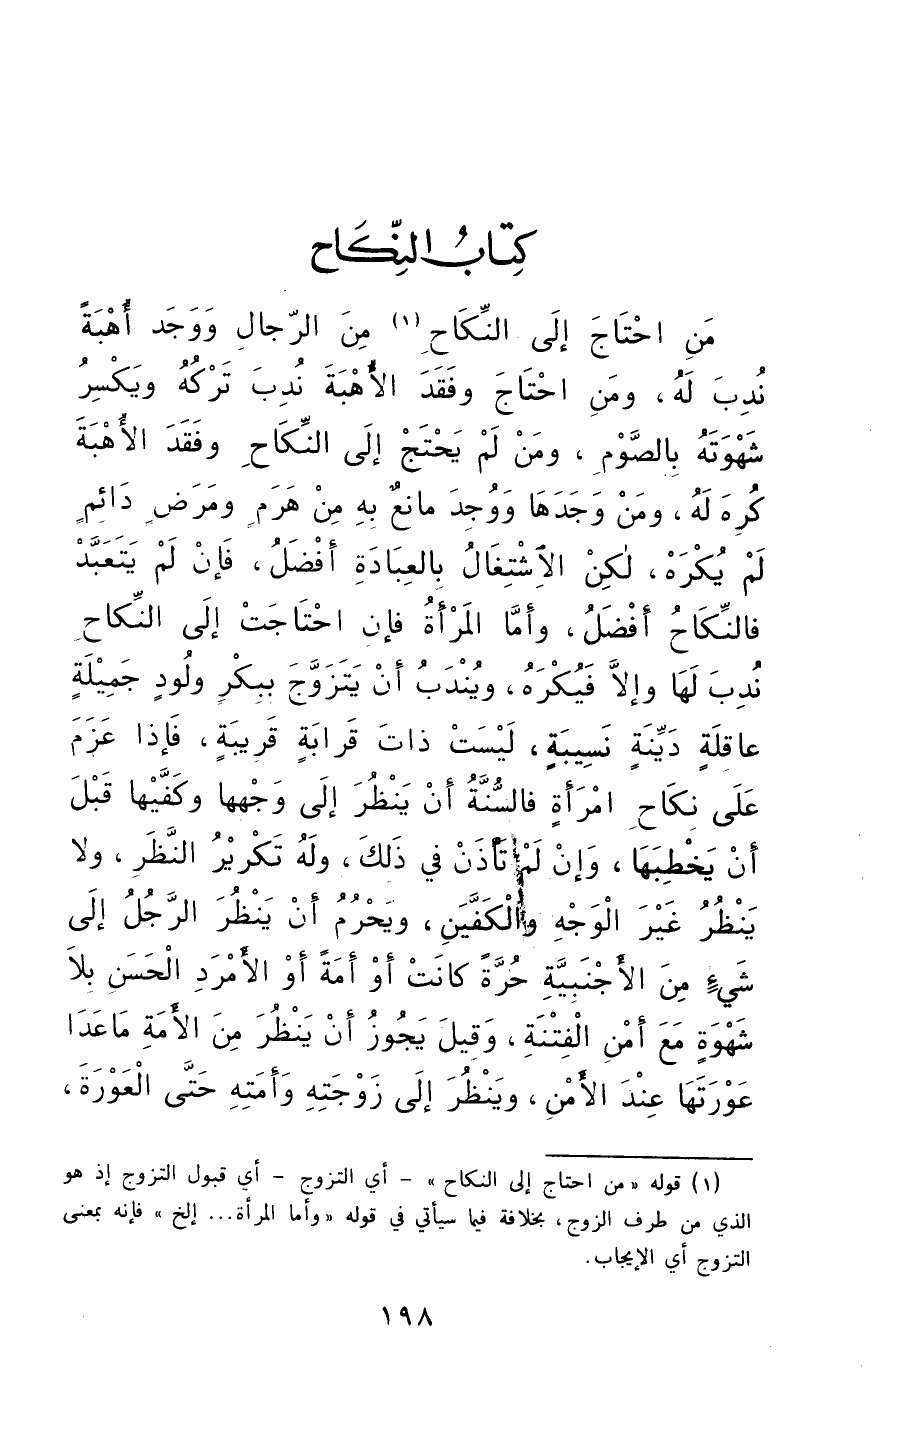 كِتَابُ النِّكَاح
مَنِ احْتَاجَ إلَى النِّكَاحِ (١) مِنَ الرّجالِ وَوَجَد أُهْبَةً
نُدِبَ لَهُ ، ومَنِ احْتَاجَ وفَقَدَ الأُهْبَةَ نُدِبَ تَرْكُهُ ويَكْسِرُ
شَهْوَتَهُ بِالصَّوْمِ ، ومَنْ لَمْ يَحْتَجْ إلَى النِّكَاحِ وفَقَدَ الأُهْبَةَ
كُرِهَ لَهُ ، ومَنْ وَجَدَهَا وَوُجِدَ مانعٌ بِهِ مِنْ هَرَمٍ ومَرَضٍ دَائِمٍ
لَمْ يُكْرَهْ ، لٰكِنْ الاِشْتِغَالُ بِالعِبَادَةِ أفْضَلُ ، فَإنْ لَمْ يَتَعَبَّدْ
فالنِّكَاحُ أفْضَلُ ، وأمَّا المَرْأةُ فإن احْتَاجَتْ إلَى النِّكاحِ
نُدِبَ لَهَا وإلاَّ فَيُكْرَهُ ، ويُنْدَبُ أنْ يَتَزَوَّجَ بِبِكْرٍ ولُودٍ جَمِيْلَةٍ
عاقلَةٍ دَيِّنَةٍ نَسِيبَةٍ ، لَيْسَتْ ذاتَ قَرابَةٍ قَرِيبَةٍ ، فَإذا عَزَمَ
عَلَى نِكَاحِ امْرَأةٍ فالسُّنَّةُ أنْ يَنْظُرَ إلَى وَجْهِها وكَفَّيْها قَبْلَ
أنْ يَخْطِبَهَا ، وَإنْ لَمْ تَأْذَنْ في ذَلكَ ، ولَهُ تَكْرِيْرُ النَّظَرِ ، ولا
يَنْظُرُ غَيْرَ الْوَجْهِ والْكَفَّيَنِ ، ويَحْرُمُ أنْ يَنْظُرَ الرَّجُلُ إلى
شَيءٍ مِنَ الأجْنَبِيَّةِ حُرَّةً كانَتْ أوْ أمَةً أوْ الأمْرَدِ الْحَسَنِ بِلاَ
شَهْوَةٍ مَعَ أمْنِ الْفِتْنَةِ ، وَقيلَ يَجُوزُ أنْ يَنْظُرَ مِنَ الأمَةِ مَاعَدَا
عَوْرَتَهَا عِنْدَ الأمْنِ ، ويَنْظُرَ إلَى زَوْجَتِهِ وَأمَتِهِ حَتَّى الْعَوْرَةَ ،
(١) قوله « من احتاج إلى النكاح » – أي التزوج – أي قبول التزوج إذ هو
الذي من طرف الزوج ، بخلافة فيما سيأتي في قوله « وأما المرأة ... إلخ » فإنه بمعنى
التزوج أي الإيجاب .
١٩٨